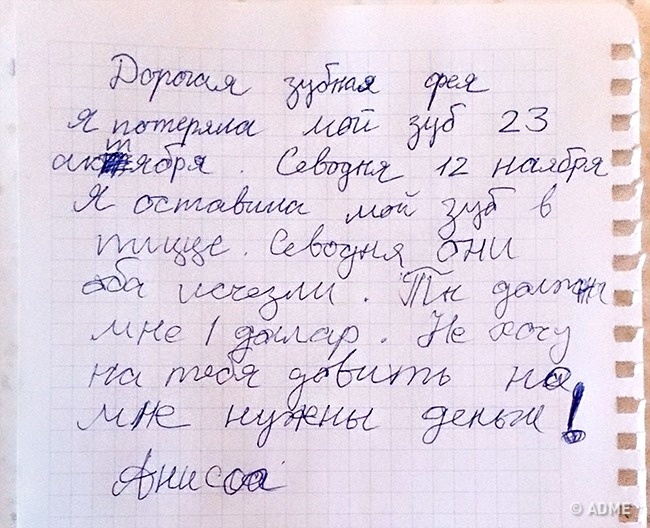 Дорогая зубная фея
Я потеряла мой зуб 23
актября. Севодня 12 наября
Я оставила мой зуб в
пицце. Севодня они
оба исчезли. Ты должны
мне 1 доллар. Не хочу
на тебя довить но
мне нужны деньги!
Анисса
© ADME